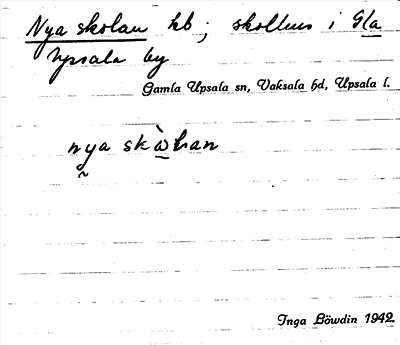 Nya skolan hb; skolhus i Gla
Upsala by
Gamla Upsala sn, Vaksala hd, Upsala l.
nya
Inga Böwdin 1942